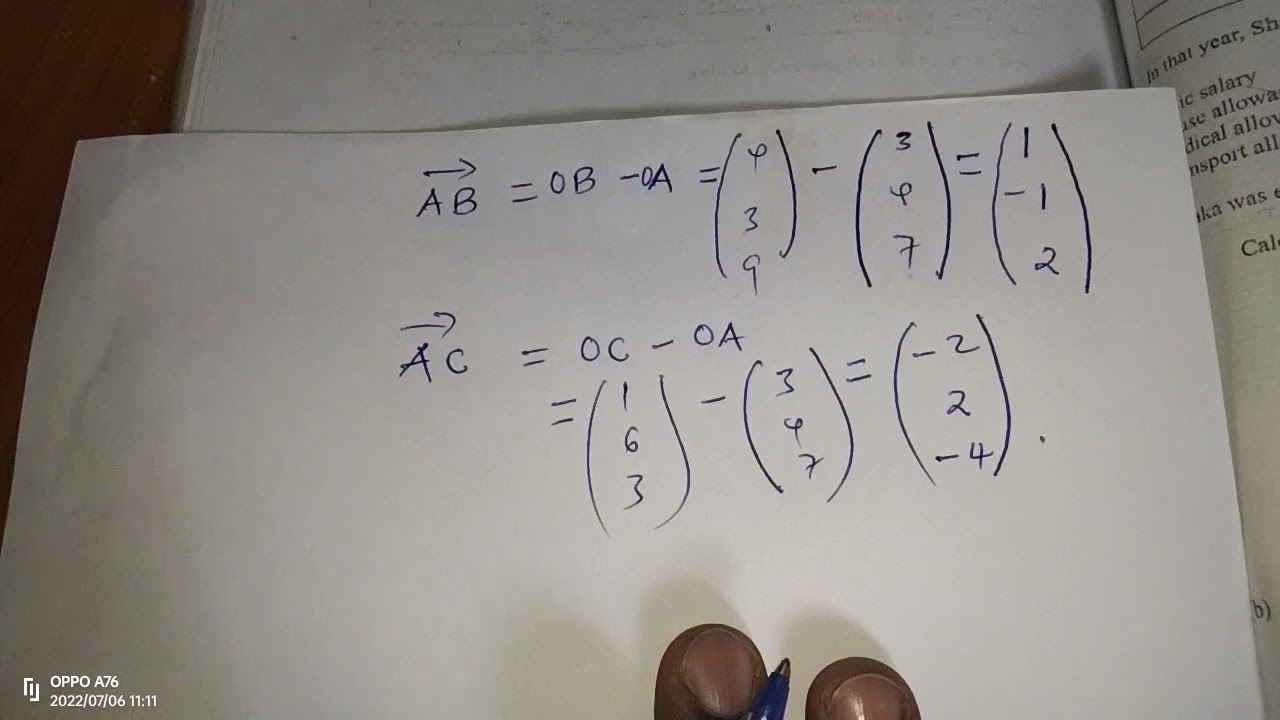 In that year, Sh
ic salary
use allowa
dical allow
nsport all
aka was e
Calc
b)
AB = OB - OA = (4 3 9) - (3 4 7) = (1 -1 2)
AC = OC - OA
= (1 6 3) - (3 4 7) = (-2 2 -4).
OPPO A76
2022/07/06 11:11